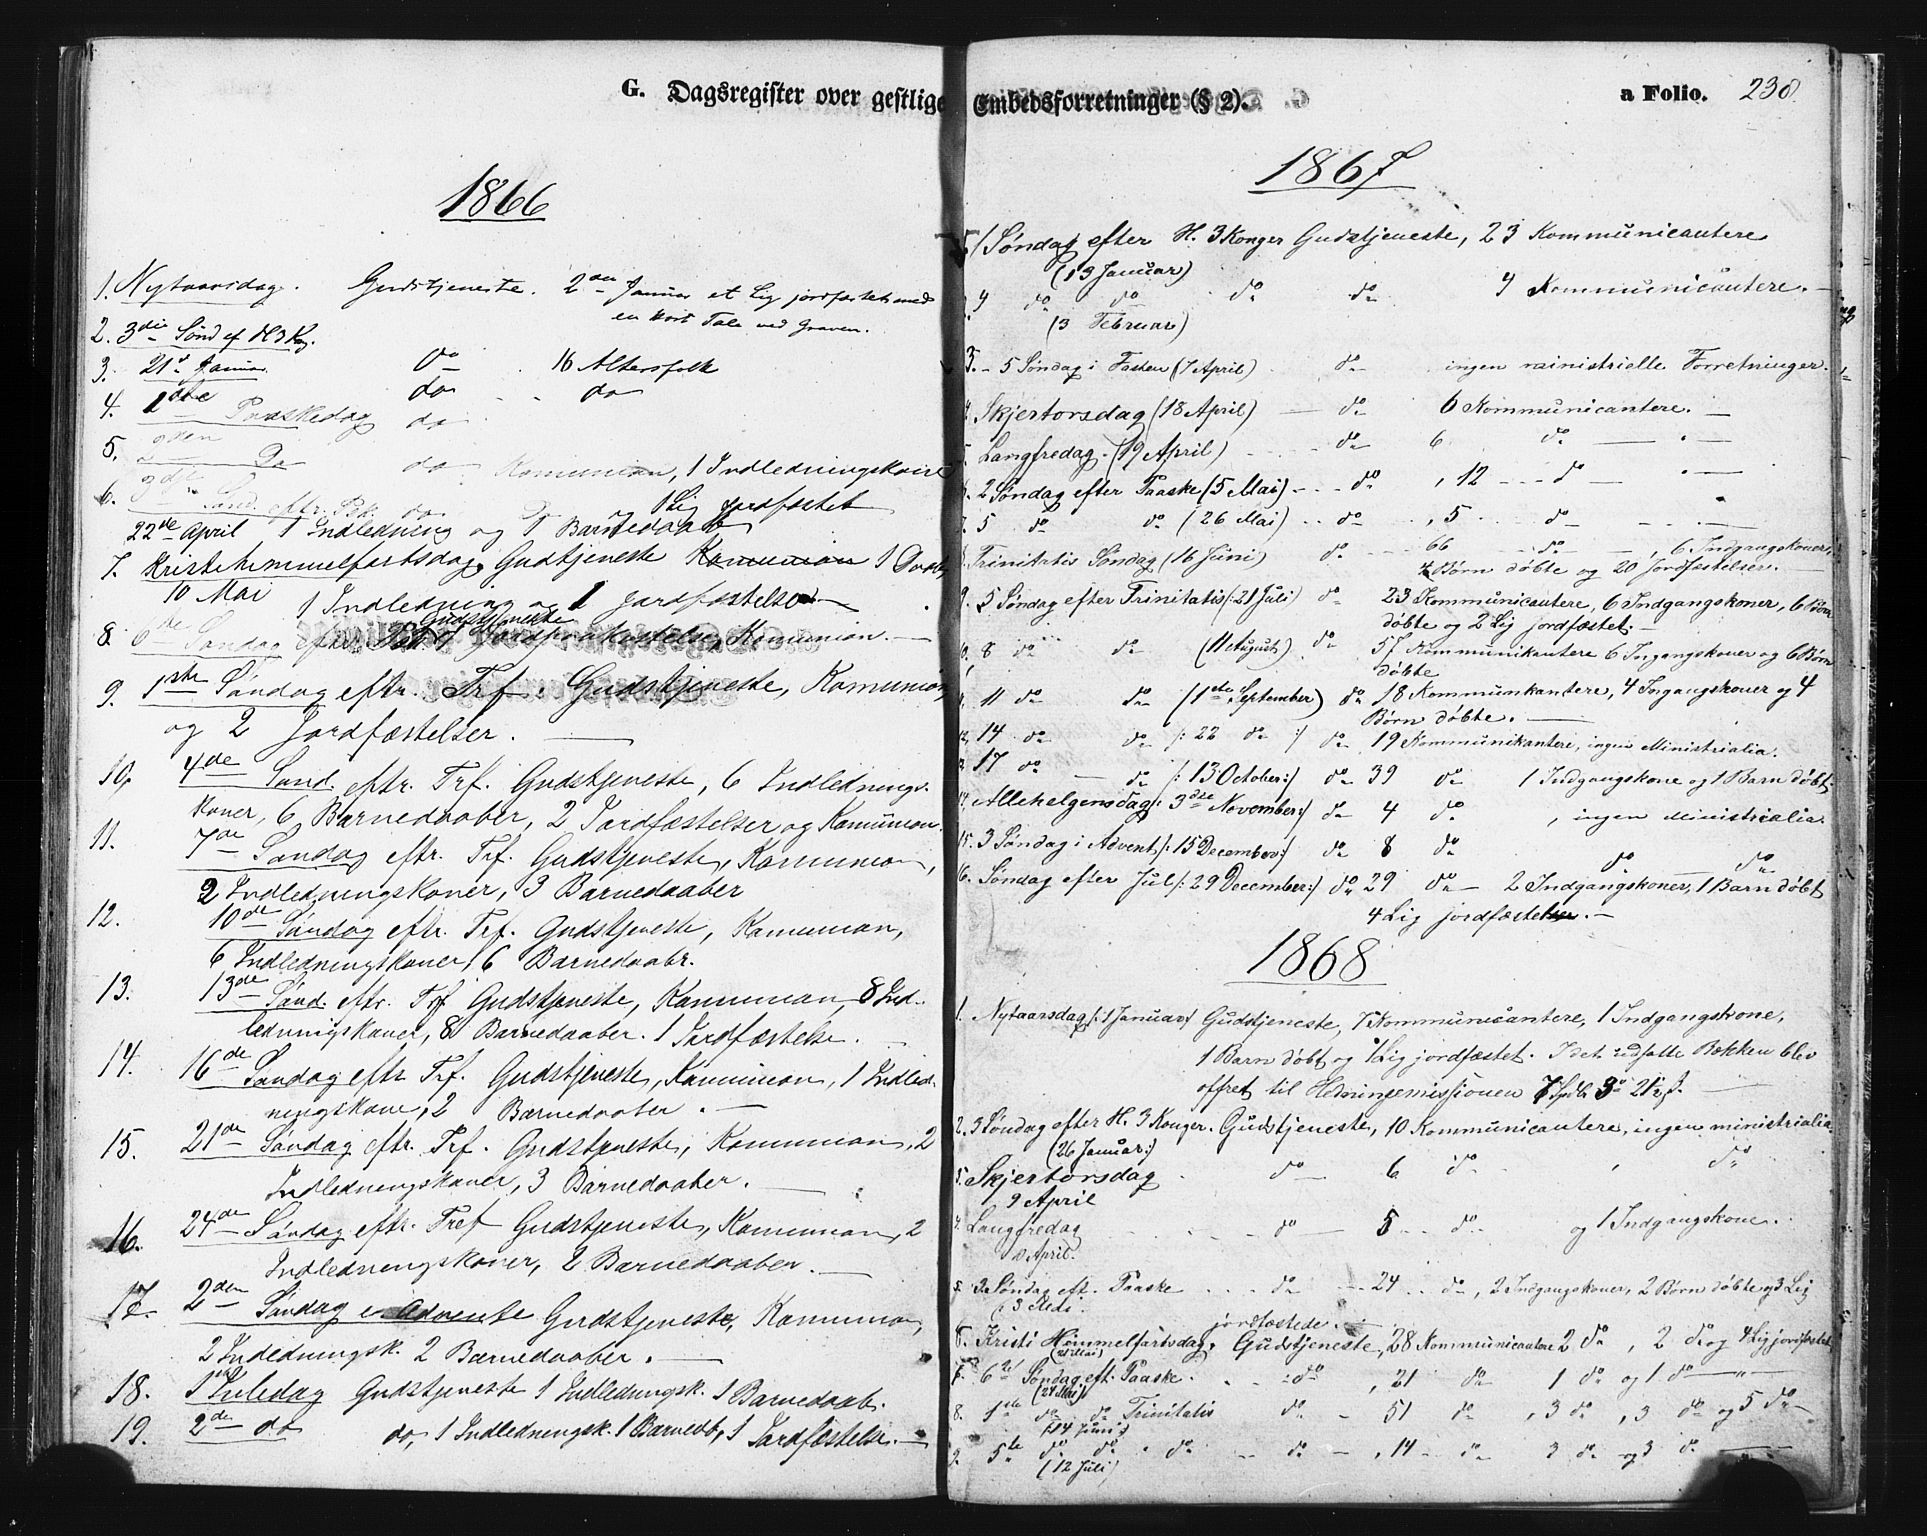 G. Dagsregister over gestlige Embedsforretninger (§ 2).
a Folio. 238.
1866
1. Nytaarsdag. Gudstjeneste. 2den Januar et Lig jordfæstet med
en kort Tale ved Graven.
2. 3die Sønd ef H 3 Kg.
3. 21d Januar do 16 Altersfolk
4. 1ste Paaskedag do do
do
5. 2den Do do Komunion, 1 Indledningskone
6. 3die Sønd. eftr. Psk. do 1 Lig jordfæstet
22de April 1 Indledning og 1 Barnedaab
7. Kristihimmelfartsdag. Gudtjeneste Komunion 1 Daab,
10 Mai 1 Indledning og 1 Jordfæstelse
8. 6de Søndag eftr. Gudstjeneste Komunion.
9. 1ste Søndag eftr. Trf. Gudstjeneste, Komunion,
og 2 Jordfæstelser.
10. 4de Sønd. eftr. Trf. Gudstjeneste, 6 Indlednings-
koner, 6 Barnedaaber, 2 Jordfæstelser og Komunion.
11. 7de Søndag eftr. Trf. Gudstjeneste, Komunion,
2 Indledningskoner, 3 Barnedaaber
12. 10de Søndag eftr. Trf. Gudstjeneste, Komunion,
6 Indledningskoner, 6 Barnedaabr.
13. 13de Sønd. eftr. Trf Gudstjeneste, Komunion, 8 Ind-
ledningskoner, 8 Barnedaaber. 1 Jordfæstelse.
14. 16de Søndag eftr Trf. Gudstjeneste, Komunion, 1 Indled-
ningskone, 2 Barnedaaber.
15. 21de Søndag eftr. Trf. Gudstjeneste, Komunion, 2
Indledningskoner, 3 Barnedaaber.
16. 24de Søndag eftr. Tref Gudstjeneste, Komunion, 2
Indledningskoner, 2 Barnedaaber.
17. 2den Søndag i Advente Gudstjeneste, Komunion,
2 Indledningsk. 2 Barnedaaber.
18. 1ste Juledag Gudstjeneste 1 Indledningsk. 1 Barnedaab.
19. 2den do do, 1 Indledningsk. 1 Barnedb, 1 Jordfæstelse.
1867
1 Søndag efter H. 3 Konger Gudstjeneste, 23 Kommunicantere
(13 Januar)
4 do do do do 4 Kommunicantere.
(3 Februar)
3. 5 Søndag i Fasten (7 April) do ingen ministrielle Forretninger.
4. Skjertorsdag (18 April) do 6 Kommunicantere.
5. Langfredag. (19 April) do 6 do
6. 2 Søndag efter Paaske (5 Mai) do , 12 do
7. 5 do do (26 Mai) do , 5 do
8. Trinitatis Søndag (16 Juni) do 66 do , 6 Indgangskoner,
4 Børn døbte og 20 Jordfæstelser.
9. 5 Søndag efter Trinitatis /: 21 Juli) do 23 Kommunicantere, 6 Indgangskoner, 6 Børn
døbte og 2 Lig jordfæstet.
10. 8 do do (11 August) do 57 Kommunikantere 6 Ingangskoner og 6 Børn
døbte
11. 11 do do (1ste September) do 18 Kommunkantere, 4 Ingangskoner og 4
Børn døbte.
12. 14 do do /: 22 do :/ do 19 Kommunikantere, ingen Ministrialia.
13. 17 do do /: 13 October :/ do 39 do 1 Indgangskone og 1 Barn døbt
14. Allehelgensdag /: 3die November :/ do 4 do , ingen Ministrialia
15. 3 Søndag i Advent /: 15 December :/ do 8 do do do
16. Søndag efter Jul /: 29 December :/ do 29 do 2 Indgangskoner, 1 Barn døbt
4 Lig jordfæstelser.
1868
1. Nytaarsdag /: 1 Januar :/ Gudstjeneste, 7 Kommunicantere, 1 Indgangskone,
1 Barn døbt og 1 Lig jordfæstet. I det udsatte Bækken blev
offret til Hedningemissjonen 7 Spdlr 3 21
2. 3 Søndag efter H. 3 Konger. Gudstjeneste, 10 Kommunicantere, ingen ministrialia
(26 Januar :)
3. Skjertorsdag do 6 do , do
9 April
4. Langfredag do 5 do og 1 Indgangskone.
April.
5. 2 Søndag eft. Paaske do 24 do, 2 Indgangskoner, 2 Børn døbte og 3 Lig
jordfæstede.
6. Kristi Himmelfartsdag. Gudstjeneste, 28 Kommunicantere 2 do, 2 do og 4 Lig jordfæstet
(21 Mai)
7. 6te Søndag eft. Paaske. do , 21 do 1 do og 1 do
8. 1ste do do Trinitatis do 51 do , 3 do , 3 do og 5 do
(14 Juni)
9. 5te do do do do , 14 do 3 do og 3 do
(12 Juli)